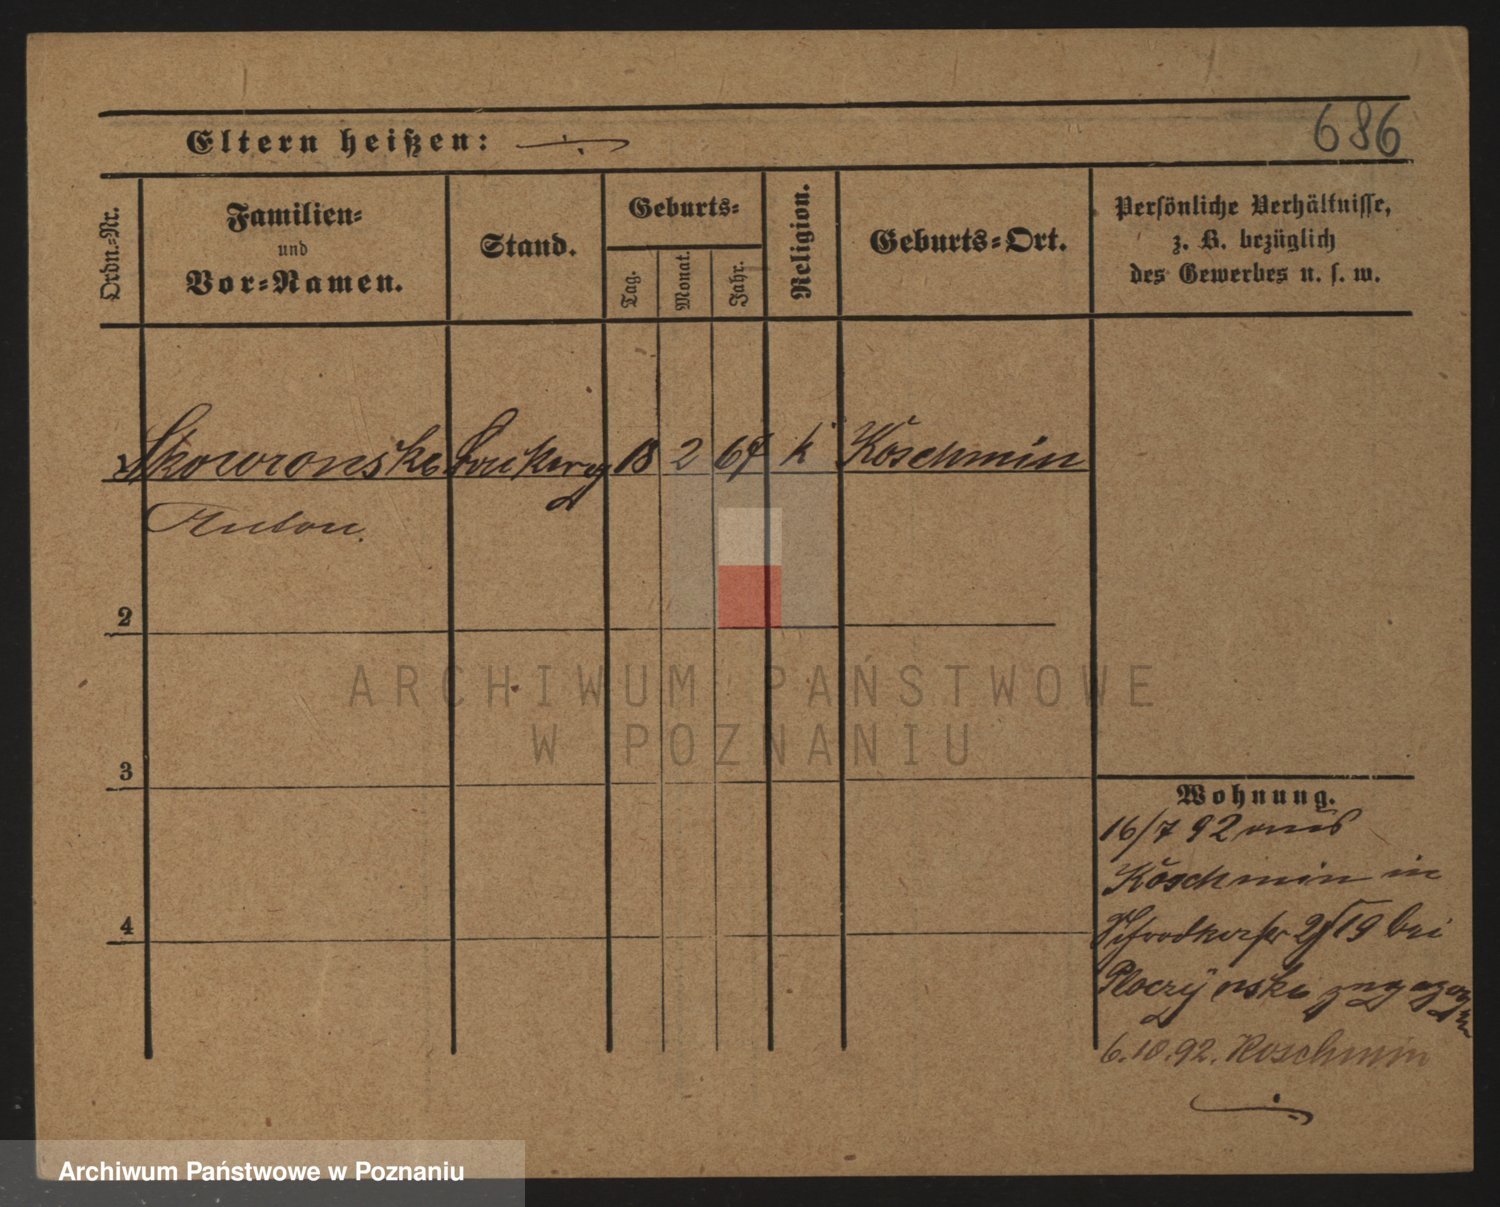 686
Eltern heißen:
Ordn.-Nr.
Familien-
und
Vor-Namen.
Stand.
Geburts-
Tag.
Monat.
Jahr.
Religion.
Geburts-Ort.
Persönliche Verhältnisse,
z. B. bezüglich
des Gewerbes u. s. w.
Skowronski 18 2 64 k Koschmin
Anton.
2
3
4
Wohnung.
16/7 92 aus
Koschmin in
19 bei
6.10.92. Koschmin
ARCHIWUM PAŃSTWOWE
W POZNANIU
Archiwum Państwowe w Poznaniu